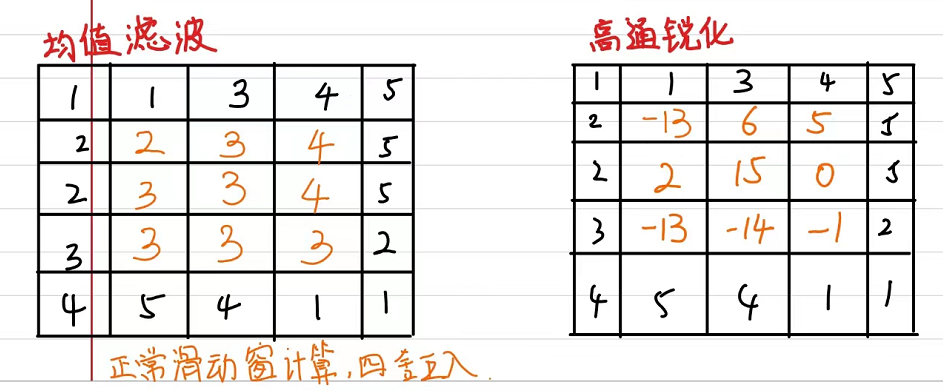 均值滤波
1 1 3 4 5
2 2 3 4 5
2 3 3 4 5
3 3 3 3 2
4 5 4 1 1
正常滑动窗计算,四舍五入.
高通锐化
1 1 3 4 5
2 -13 6 5 5
2 2 15 0 5
3 -13 -14 -1 2
4 5 4 1 1